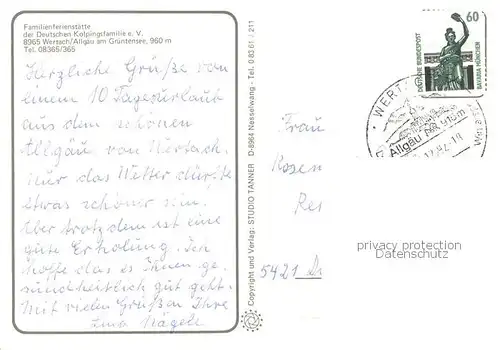 Familienferienstätte
der Deutschen Kolpingsfamilie e. V.
8965 Wertach/Allgäu am Grüntensee, 960 m
Tel. 08365/365
Herzliche Grüße von
einem 10 Tagesurlaub
aus dem schönen
Allgäu von Wertach.
Nur das Wetter dürfte
etwas schöner sein.
Aber trotzdem ist eine
gute Erholung. Ich
hoffe das es Ihnen ge.
sundheitlich gut geht.
Mit vielen Grüßen Ihre
Irma Nägele
Copyright und Verlag: STUDIO TANNER D-8964 Nesselwang - Tel. 0 83 61 / 211
60
DEUTSCHE BUNDESPOST
BAVARIA MÜNCHEN
WERT
Allgäu
Frau
Rosen
Re
5421
privacy protection
Datenschutz